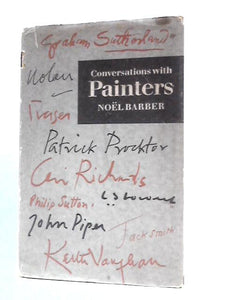 Graham Sutherland
Nolan
Conversations with
Painters
NOËL BARBER
Fraser
Patrick Procktor
Ceri Richards
Philip Sutton
L S Lowry
John Piper
Jack Smith
Keith Vaughan